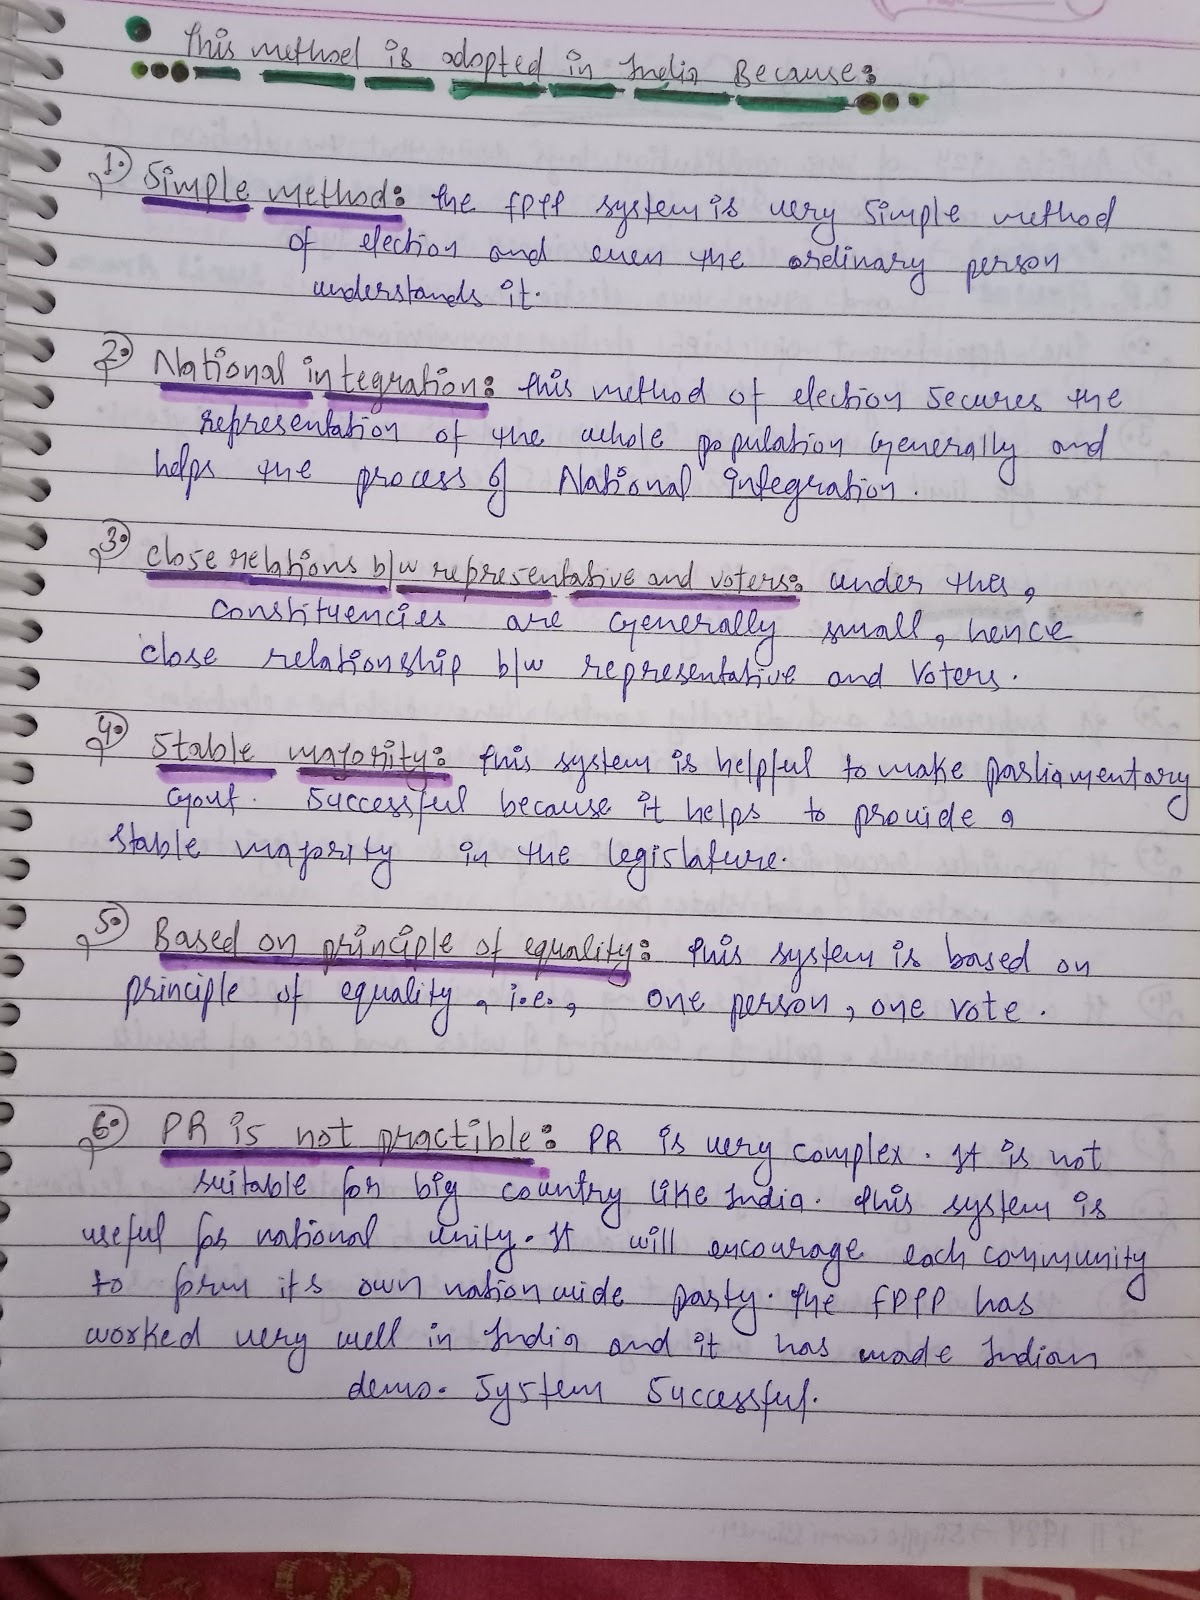 This method is adopted in India Because:
1. Simple method: the FPTP system is very simple method
of election and even the ordinary person
understands it.
2. National integration: this method of election secures the
representation of the whole population generally and
helps the process of National integration.
3. close relations b/w representative and voters: under this,
constituencies are generally small, hence
close relationship b/w representative and Voters.
4. Stable majority: this system is helpful to make parliamentary
govt. Successful because it helps to provide a
stable majority in the legislature.
5. Based on principle of equality: this system is based on
principle of equality, i.e., one person, one vote.
6. PR is not practible: PR is very complex. It is not
suitable for big country like India. this system is
useful for national unity. It will encourage each community
to form its own nation wide party. the FPTP has
worked very well in India and it has made Indian
demo. System Successful.